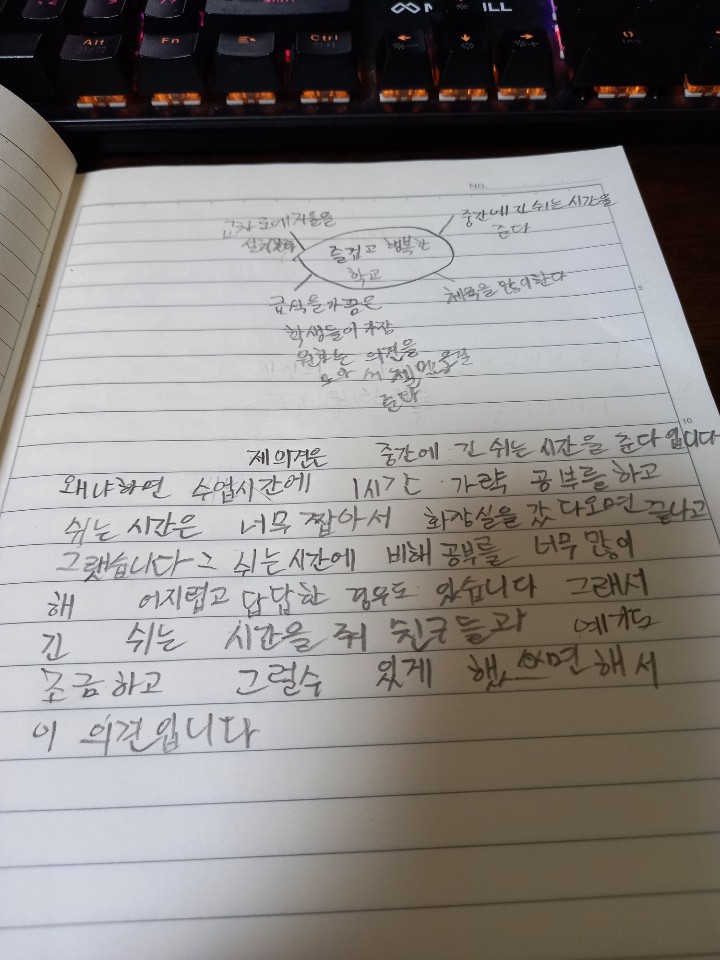 Alt
Fn
Ctrl
ILL
NO.
중간에 긴 쉬는 시간을
준다
즐겁고 행복한
학교
체육을 많이한다
급식을 가끔은
학생들이 가장
원하는 의견을
모아서
준다
제 의견은 중간에 긴 쉬는 시간을 준다 입니다
왜냐하면 수업시간에 1시간 가략 공부를 하고
쉬는 시간은 너무 짧아서 화장실을 갔다오면 끝나고
그랬습니다 그 쉬는시간에 비해 공부를 너무 많이
해 어지럽고 답답한 경우도 있습니다 그래서
긴 쉬는 시간을 줘 친구들과
조금하고 그럴수 있게 했으면 해서
이 의견입니다
10